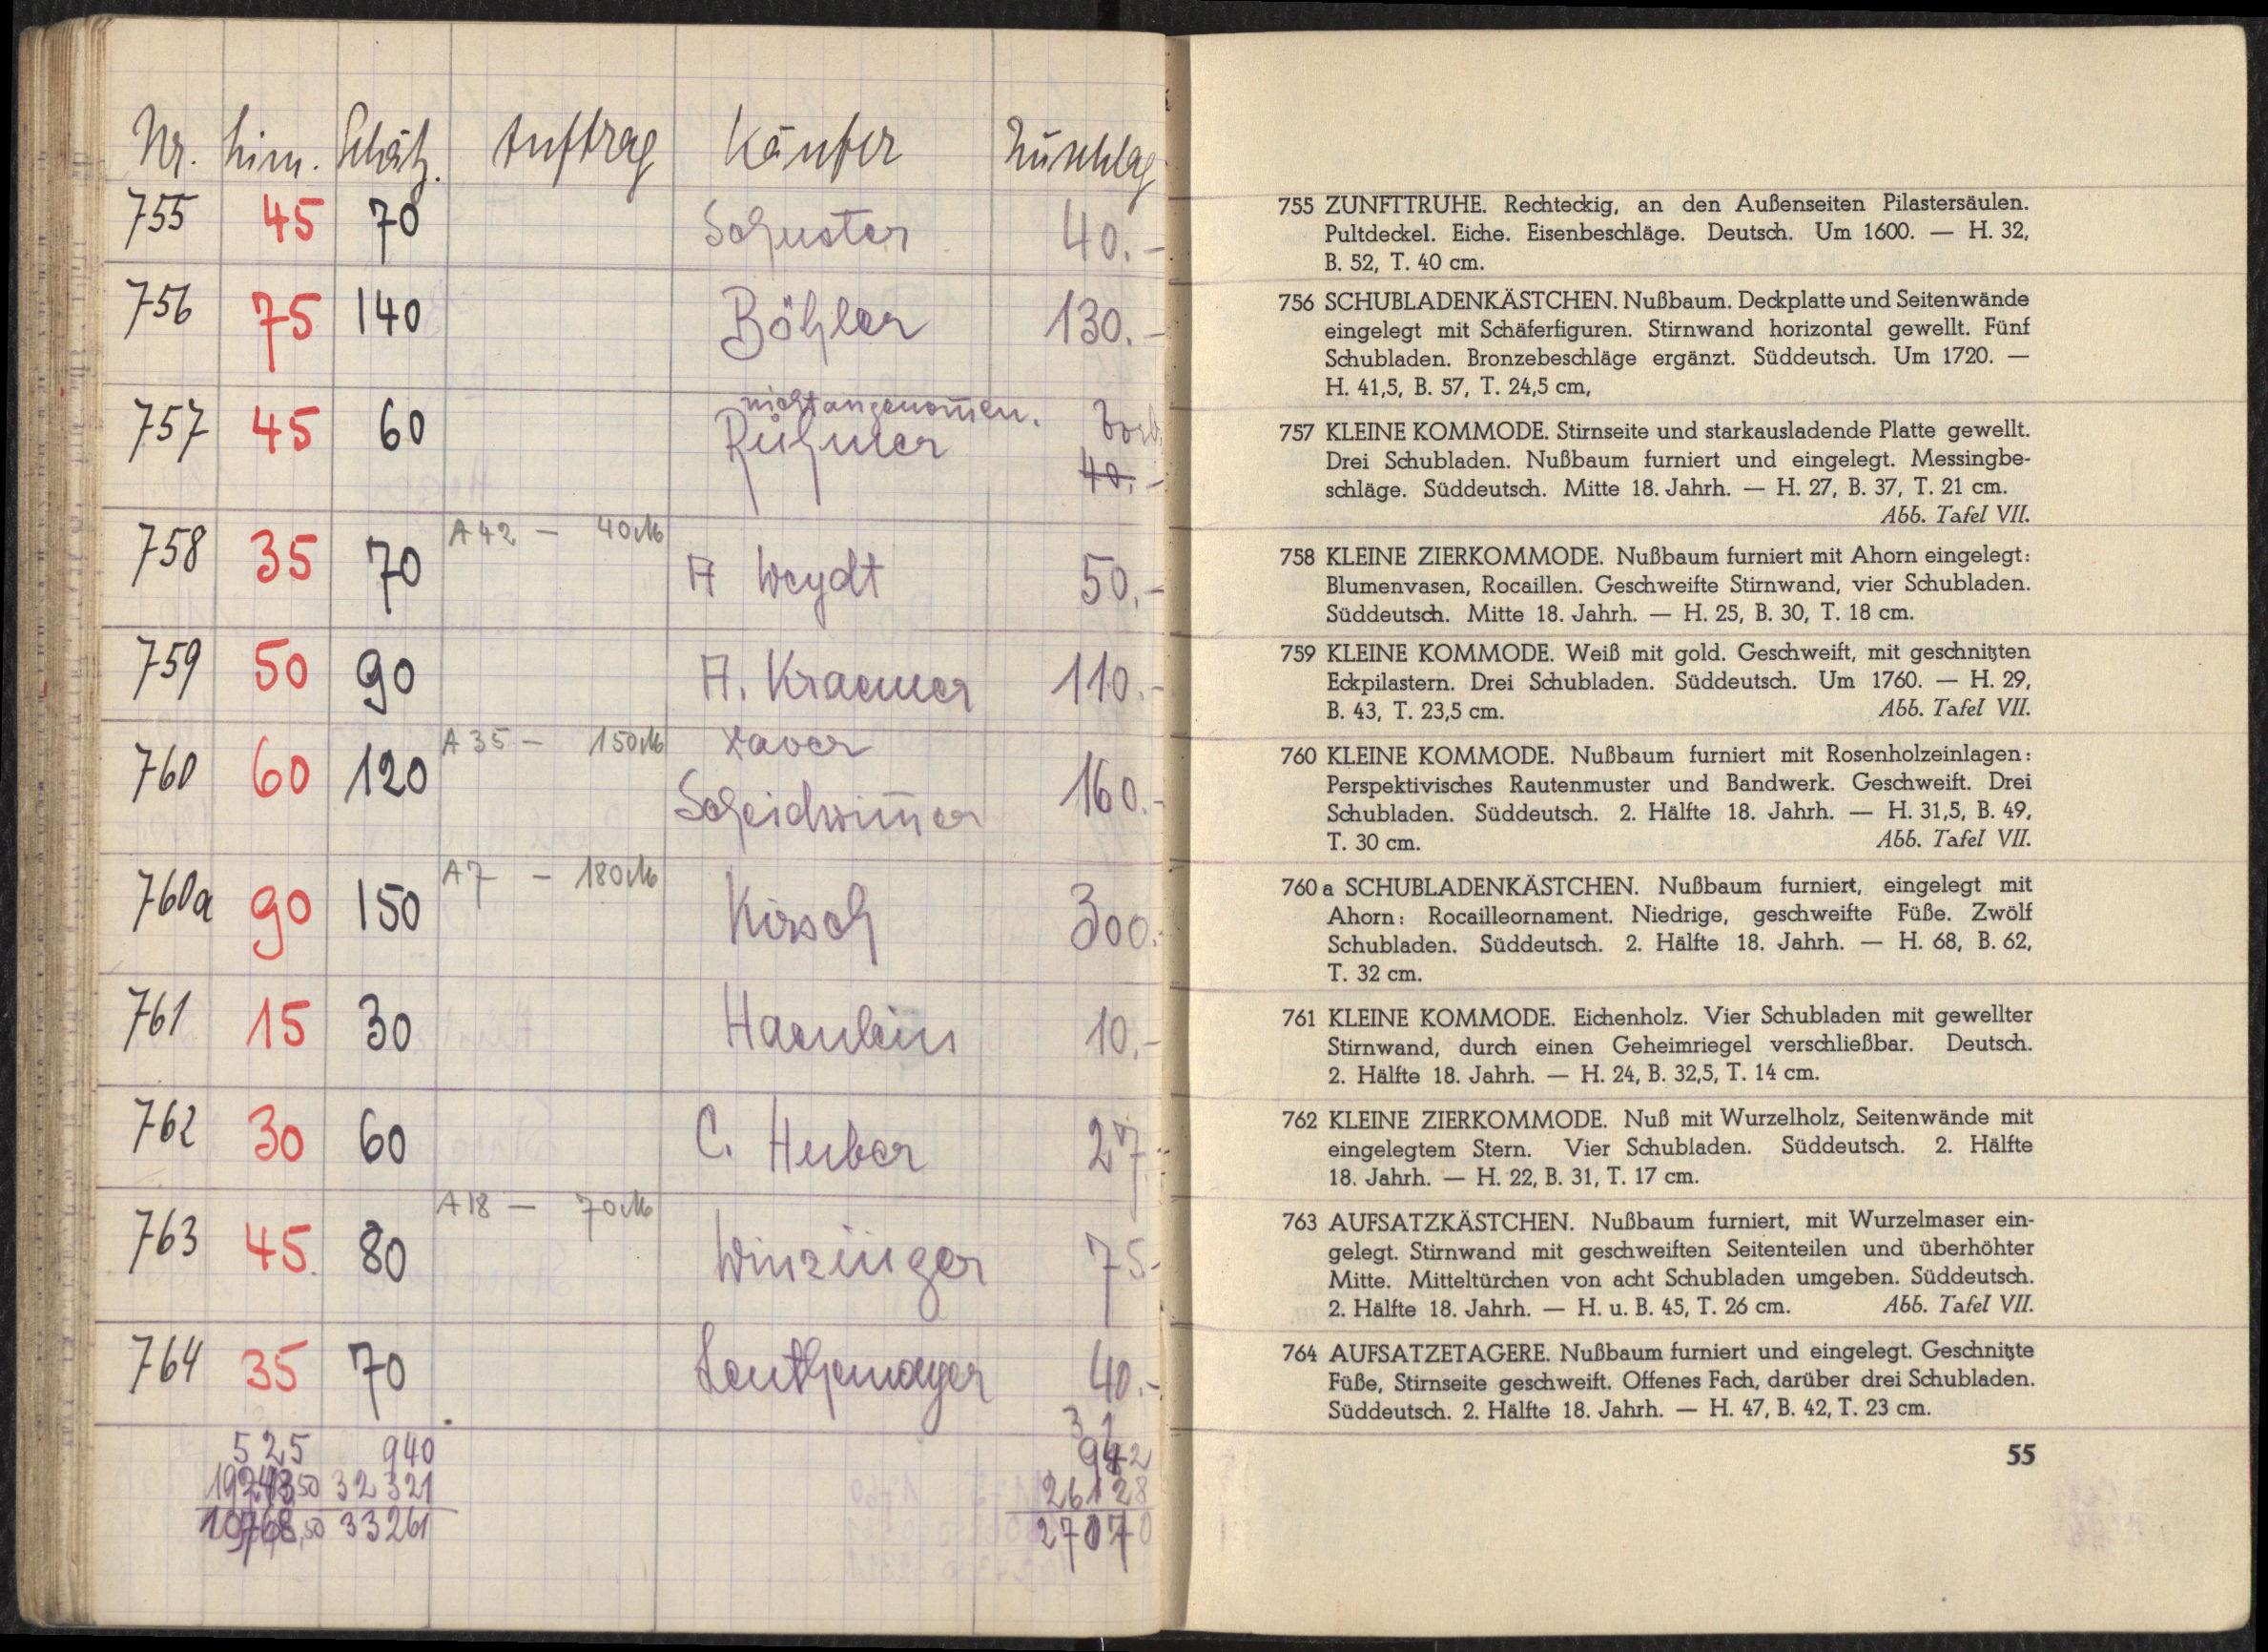 Nr. Lim. Schätz. Auftrag Käufer Zuschlag
755 45 70 Schuster 40.-
756 75 140 Böhler 130.-
nicht angenom̄en.
757 45 60 Rühmer
40.-
A 42 - 40 M
758 35 70 A Weydt 50.-
759 50 90 A. Kraemer 110.-
A 35 - 150 M Xaver
760 60 120 160.-
Scheidwim̄er
A 7 - 180 M
760a 90 150 Kirsch 300.-
761 15 30 Haenlein 10.-
762 30 60 C. Huber 27.-
A 18 - 70 M
763 45 80 Winzinger 75.-
764 35 70 Leuthemayer 40.-
525 940 942
32321 26128
33261 27070
755 ZUNFTTRUHE. Rechteckig, an den Außenseiten Pilastersäulen.
Pultdeckel. Eiche. Eisenbeschläge. Deutsch. Um 1600. — H. 32,
B. 52, T. 40 cm.
756 SCHUBLADENKÄSTCHEN. Nußbaum. Deckplatte und Seitenwände
eingelegt mit Schäferfiguren. Stirnwand horizontal gewellt. Fünf
Schubladen. Bronzebeschläge ergänzt. Süddeutsch. Um 1720. —
H. 41,5, B. 57, T. 24,5 cm,
757 KLEINE KOMMODE. Stirnseite und starkausladende Platte gewellt.
Drei Schubladen. Nußbaum furniert und eingelegt. Messingbe-
schläge. Süddeutsch. Mitte 18. Jahrh. — H. 27, B. 37, T. 21 cm.
Abb. Tafel VII.
758 KLEINE ZIERKOMMODE. Nußbaum furniert mit Ahorn eingelegt:
Blumenvasen, Rocaillen. Geschweifte Stirnwand, vier Schubladen.
Süddeutsch. Mitte 18. Jahrh. — H. 25, B. 30, T. 18 cm.
759 KLEINE KOMMODE. Weiß mit gold. Geschweift, mit geschnitzten
Eckpilastern. Drei Schubladen. Süddeutsch. Um 1760. — H. 29,
B. 43, T. 23,5 cm. Abb. Tafel VII.
760 KLEINE KOMMODE. Nußbaum furniert mit Rosenholzeinlagen:
Perspektivisches Rautenmuster und Bandwerk. Geschweift. Drei
Schubladen. Süddeutsch. 2. Hälfte 18. Jahrh. — H. 31,5, B. 49,
T. 30 cm. Abb. Tafel VII.
760 a SCHUBLADENKÄSTCHEN. Nußbaum furniert, eingelegt mit
Ahorn: Rocailleornament. Niedrige, geschweifte Füße. Zwölf
Schubladen. Süddeutsch. 2. Hälfte 18. Jahrh. — H. 68, B. 62,
T. 32 cm.
761 KLEINE KOMMODE. Eichenholz. Vier Schubladen mit gewellter
Stirnwand, durch einen Geheimriegel verschließbar. Deutsch.
2. Hälfte 18. Jahrh. — H. 24, B. 32,5, T. 14 cm.
762 KLEINE ZIERKOMMODE. Nuß mit Wurzelholz, Seitenwände mit
eingelegtem Stern. Vier Schubladen. Süddeutsch. 2. Hälfte
18. Jahrh. — H. 22, B. 31, T. 17 cm.
763 AUFSATZKÄSTCHEN. Nußbaum furniert, mit Wurzelmaser ein-
gelegt. Stirnwand mit geschweiften Seitenteilen und überhöhter
Mitte. Mitteltürchen von acht Schubladen umgeben. Süddeutsch.
2. Hälfte 18. Jahrh. — H. u. B. 45, T. 26 cm. Abb. Tafel VII.
764 AUFSATZETAGERE. Nußbaum furniert und eingelegt. Geschnitzte
Füße, Stirnseite geschweift. Offenes Fach, darüber drei Schubladen.
Süddeutsch. 2. Hälfte 18. Jahrh. — H. 47, B. 42, T. 23 cm.
55